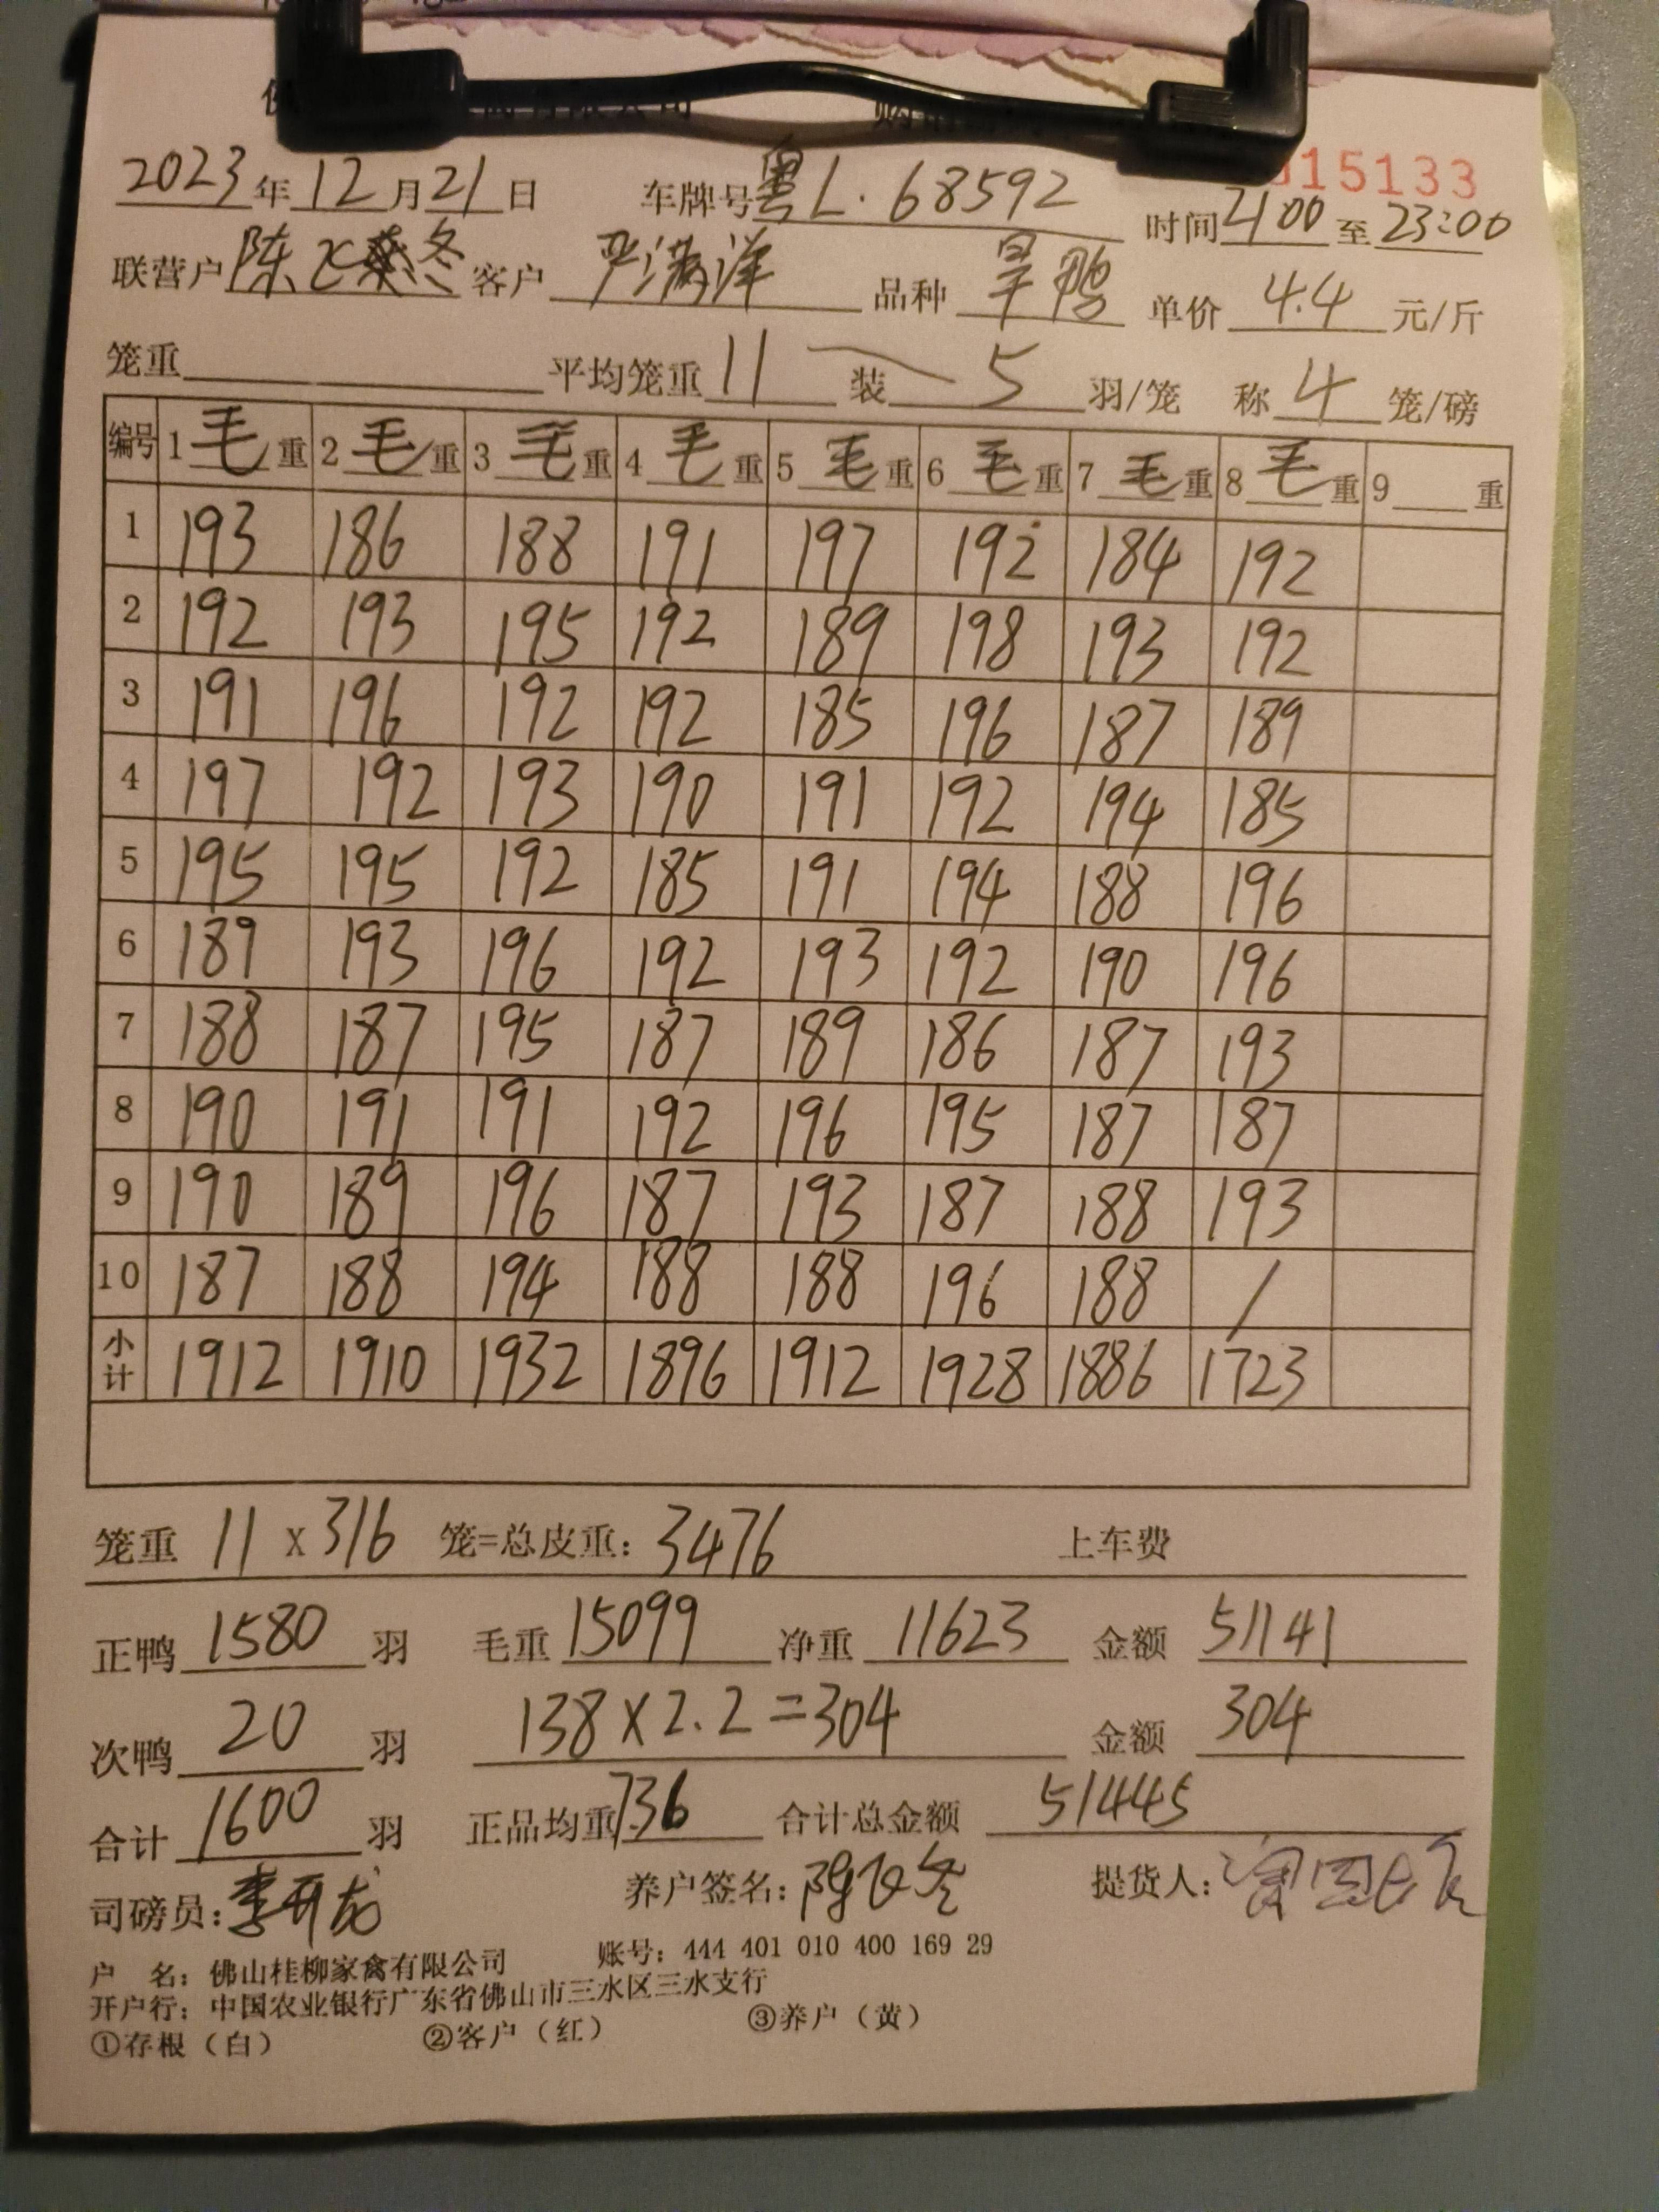 2023年12月21日 车牌号粤L·68592 15133
时间21:00至23:00
联营户陈飞冬 客户严满洋 品种旱鸭 单价4.4元/斤
笼重 平均笼重11 装5羽/笼 称4笼/磅
编号 1毛重 2毛重 3毛重 4毛重 5毛重 6毛重 7毛重 8毛重 9重
1 193 186 188 191 197 192 184 192
2 192 193 195 192 189 198 193 192
3 191 196 192 192 185 196 187 189
4 197 192 193 190 191 192 194 185
5 195 195 192 185 191 194 188 196
6 189 193 196 192 193 192 190 196
7 188 187 195 187 189 186 187 193
8 190 191 191 192 196 195 187 187
9 190 189 196 187 193 187 188 193
10 187 188 194 188 188 196 188 /
小计 1912 1910 1932 1896 1912 1928 1886 1723
笼重 11×316 笼=总皮重:3476 上车费
正鸭1580羽 毛重15099 净重11623 金额51141
次鸭20羽 138×2.2=304 金额304
合计1600羽 正品均重7.36 合计总金额51445
司磅员:李开龙 养户签名:陈飞冬 提货人:
户 名:佛山桂柳家禽有限公司 账号:444 401 010 400 169 29
开户行:中国农业银行广东省佛山市三水区三水支行
①存根（白） ②客户（红） ③养户（黄）